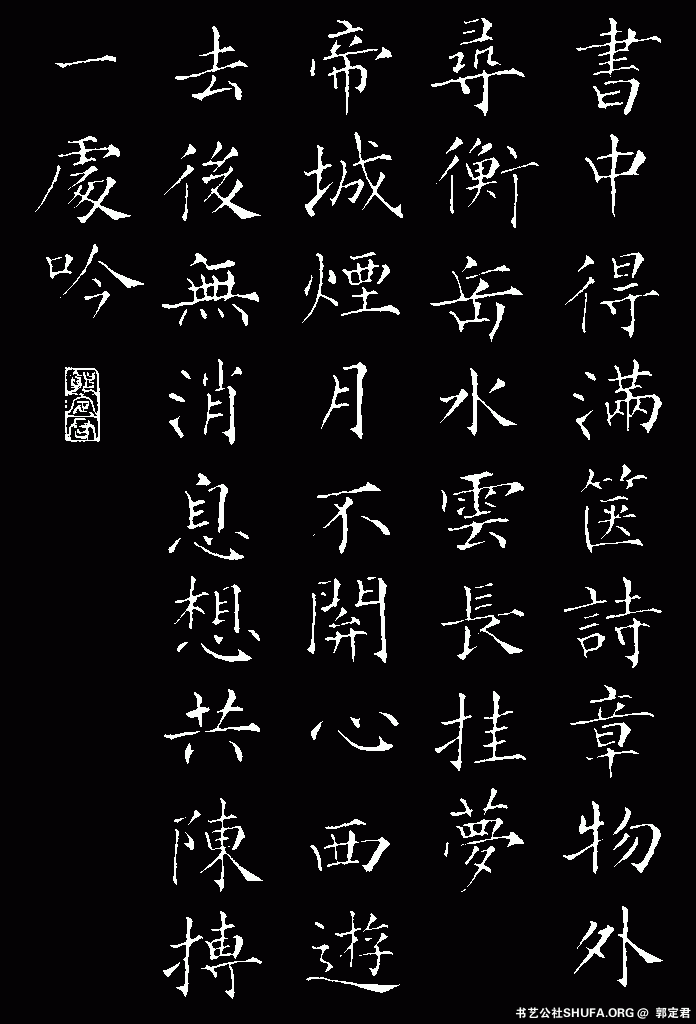 書中得滿箧詩章物外
尋衡岳水雲長挂夢
帝城煙月不關心西遊
去後無消息想共陳摶
一處吟
郭定君
书艺公社SHUFA.ORG @ 郭定君